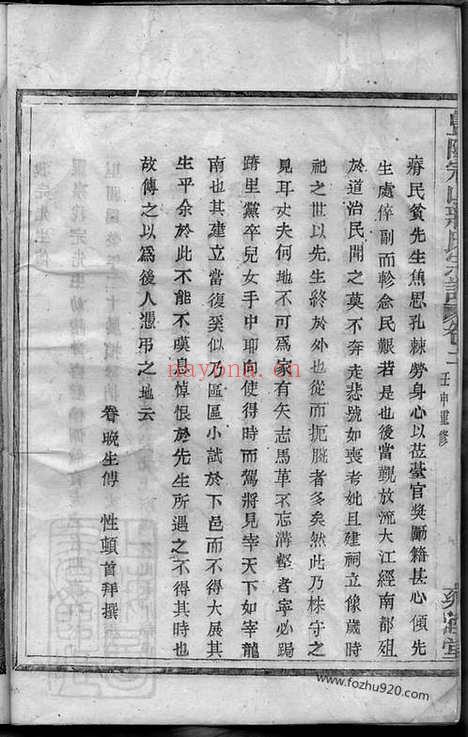 瘠民貧先生焦思孔棘勞身心以莅臺官奬勵籍甚心傾先
生處倅副而軫念民艱若是也後當觀放流大江經南都爼
於道治民聞之莫不奔走悲號如喪考妣且建祠立像歲時
祀之世以先生終於外也而扼腕者多矣然此乃株守之
見耳丈夫何地不可爲家有矢志馬革不忘溝壑者寧必跼
蹐里黨卒兒女手中聊耶使得時而駕將見宰天下如宰龍
南也其建立當復奚似乃區區小試於下邑而不得大展其
生平余於此不能不嘆息悼恨於先生所遇之不得其時也
故傳之以爲後人憑弔之地云
眷晚生傅 性頓首拜撰
卷二
壬申重修
nayona.cn
www.fozhu920.com